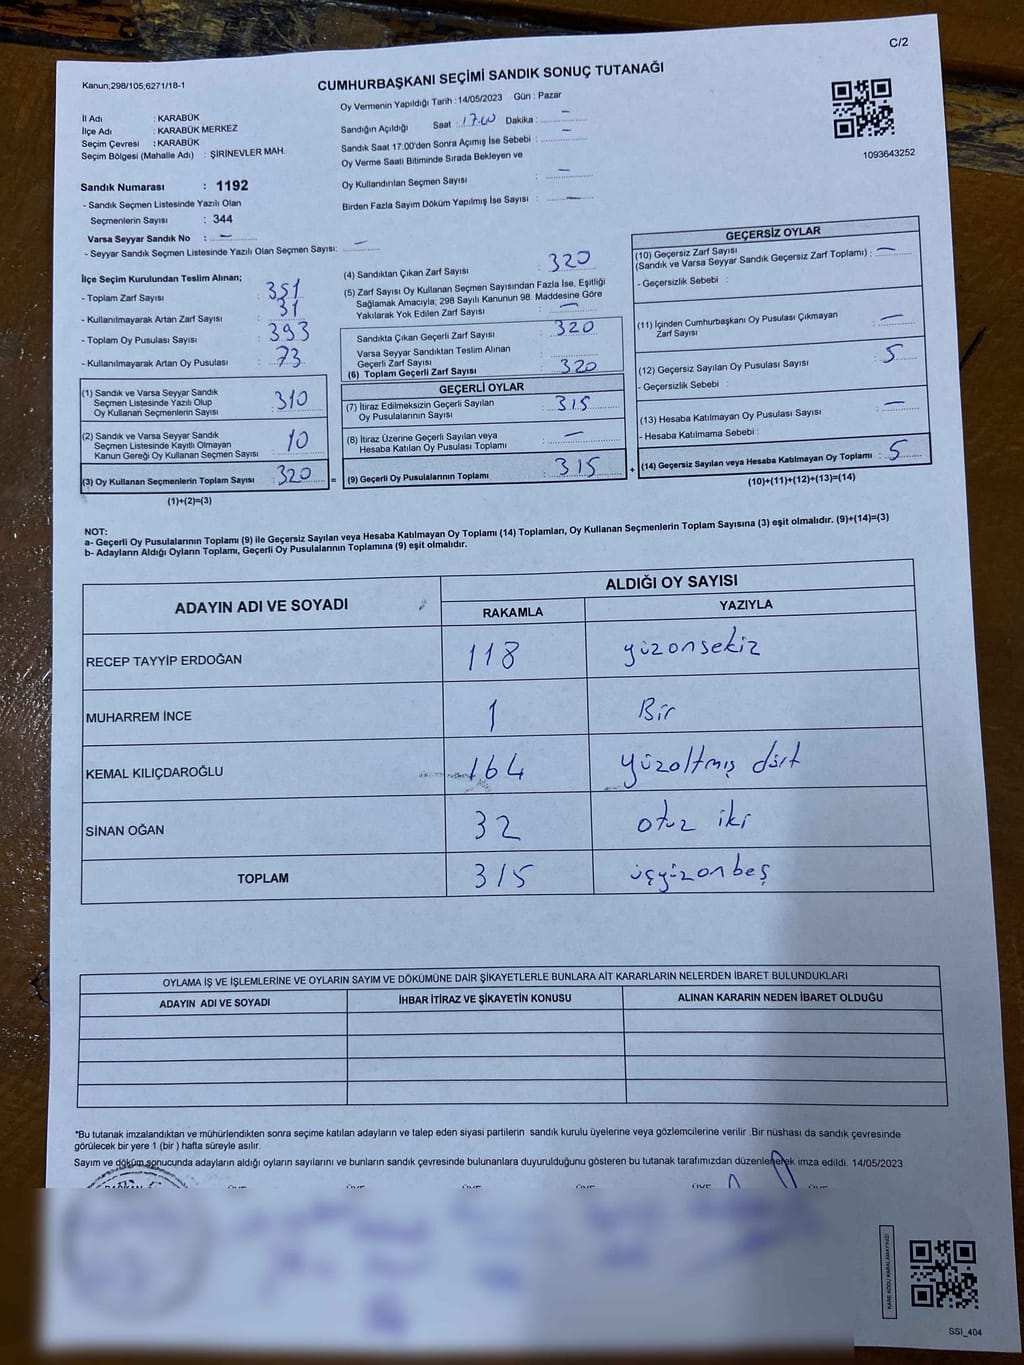 C/2
Kanun;298/105;6271/18-1
CUMHURBAŞKANI SEÇİMİ SANDIK SONUÇ TUTANAĞI
Oy Vermenin Yapıldığı Tarih : 14/05/2023 Gün : Pazar
İl Adı : KARABÜK
İlçe Adı : KARABÜK MERKEZ
Seçim Çevresi : KARABÜK
Seçim Bölgesi (Mahalle Adı) : ŞİRİNEVLER MAH.
Sandığın Açıldığı Saat : 17.00 Dakika : —
Sandık Saat 17:00'den Sonra Açımış İse Sebebi : —
Oy Verme Saati Bitiminde Sırada Bekleyen ve
Oy Kullandırılan Seçmen Sayısı : —
Birden Fazla Sayım Döküm Yapılmış İse Sayısı : —
1093643252
Sandık Numarası : 1192
- Sandık Seçmen Listesinde Yazılı Olan
Seçmenlerin Sayısı : 344
Varsa Seyyar Sandık No : —
- Seyyar Sandık Seçmen Listesinde Yazılı Olan Seçmen Sayısı: —
İlçe Seçim Kurulundan Teslim Alınan;
- Toplam Zarf Sayısı : 351
- Kullanılmayarak Artan Zarf Sayısı : 31
- Toplam Oy Pusulası Sayısı : 393
- Kullanılmayarak Artan Oy Pusulası : 73
(1) Sandık ve Varsa Seyyar Sandık
Seçmen Listesinde Yazılı Olup
Oy Kullanan Seçmenlerin Sayısı : 310
(2) Sandık ve Varsa Seyyar Sandık
Seçmen Listesinde Kayıtlı Olmayan
Kanun Gereği Oy Kullanan Seçmen Sayısı : 10
(3) Oy Kullanan Seçmenlerin Toplam Sayısı : 320 =
(1)+(2)=(3)
(4) Sandıktan Çıkan Zarf Sayısı : 320
(5) Zarf Sayısı Oy Kullanan Seçmen Sayısından Fazla İse, Eşitliği
Sağlamak Amacıyla; 298 Sayılı Kanunun 98. Maddesine Göre
Yakılarak Yok Edilen Zarf Sayısı : —
Sandıkta Çıkan Geçerli Zarf Sayısı : 320
Varsa Seyyar Sandıktan Teslim Alınan
Geçerli Zarf Sayısı :
(6) Toplam Geçerli Zarf Sayısı : 320
GEÇERLİ OYLAR
(7) İtiraz Edilmeksizin Geçerli Sayılan
Oy Pusulalarının Sayısı : 315
(8) İtiraz Üzerine Geçerli Sayılan veya
Hesaba Katılan Oy Pusulası Toplamı : —
(9) Geçerli Oy Pusulalarının Toplamı : 315 +
GEÇERSİZ OYLAR
(10) Geçersiz Zarf Sayısı
(Sandık ve Varsa Seyyar Sandık Geçersiz Zarf Toplamı) : —
- Geçersizlik Sebebi :
(11) İçinden Cumhurbaşkanı Oy Pusulası Çıkmayan
Zarf Sayısı : —
(12) Geçersiz Sayılan Oy Pusulası Sayısı : 5
- Geçersizlik Sebebi :
(13) Hesaba Katılmayan Oy Pusulası Sayısı : —
- Hesaba Katılmama Sebebi :
(14) Geçersiz Sayılan veya Hesaba Katılmayan Oy Toplamı : 5
(10)+(11)+(12)+(13)=(14)
NOT:
a- Geçerli Oy Pusulalarının Toplamı (9) ile Geçersiz Sayılan veya Hesaba Katılmayan Oy Toplamı (14) Toplamları, Oy Kullanan Seçmenlerin Toplam Sayısına (3) eşit olmalıdır. (9)+(14)=(3)
b- Adayların Aldığı Oyların Toplamı, Geçerli Oy Pusulalarının Toplamına (9) eşit olmalıdır.
ADAYIN ADI VE SOYADI ALDIĞI OY SAYISI
RAKAMLA YAZIYLA
RECEP TAYYİP ERDOĞAN 118 yüzonsekiz
MUHARREM İNCE 1 Bir
KEMAL KILIÇDAROĞLU 164 yüzaltmış dört
SİNAN OĞAN 32 otuz iki
TOPLAM 315 üçyüzonbeş
OYLAMA İŞ VE İŞLEMLERİNE VE OYLARIN SAYIM VE DÖKÜMÜNE DAİR ŞİKAYETLERLE BUNLARA AİT KARARLARIN NELERDEN İBARET BULUNDUKLARI
ADAYIN ADI VE SOYADI İHBAR İTİRAZ VE ŞİKAYETİN KONUSU ALINAN KARARIN NEDEN İBARET OLDUĞU
*Bu tutanak imzalandıktan ve mühürlendikten sonra seçime katılan adayların ve talep eden siyasi partilerin sandık kurulu üyelerine veya gözlemcilerine verilir .Bir nüshası da sandık çevresinde
görülecek bir yere 1 (bir ) hafta süreyle asılır.
Sayım ve döküm sonucunda adayların aldığı oyların sayılarını ve bunların sandık çevresinde bulunanlara duyurulduğunu gösteren bu tutanak tarafımızdan düzenlenerek imza edildi. 14/05/2023
KARE KODU KARALAMAYINIZ!
SSI_404